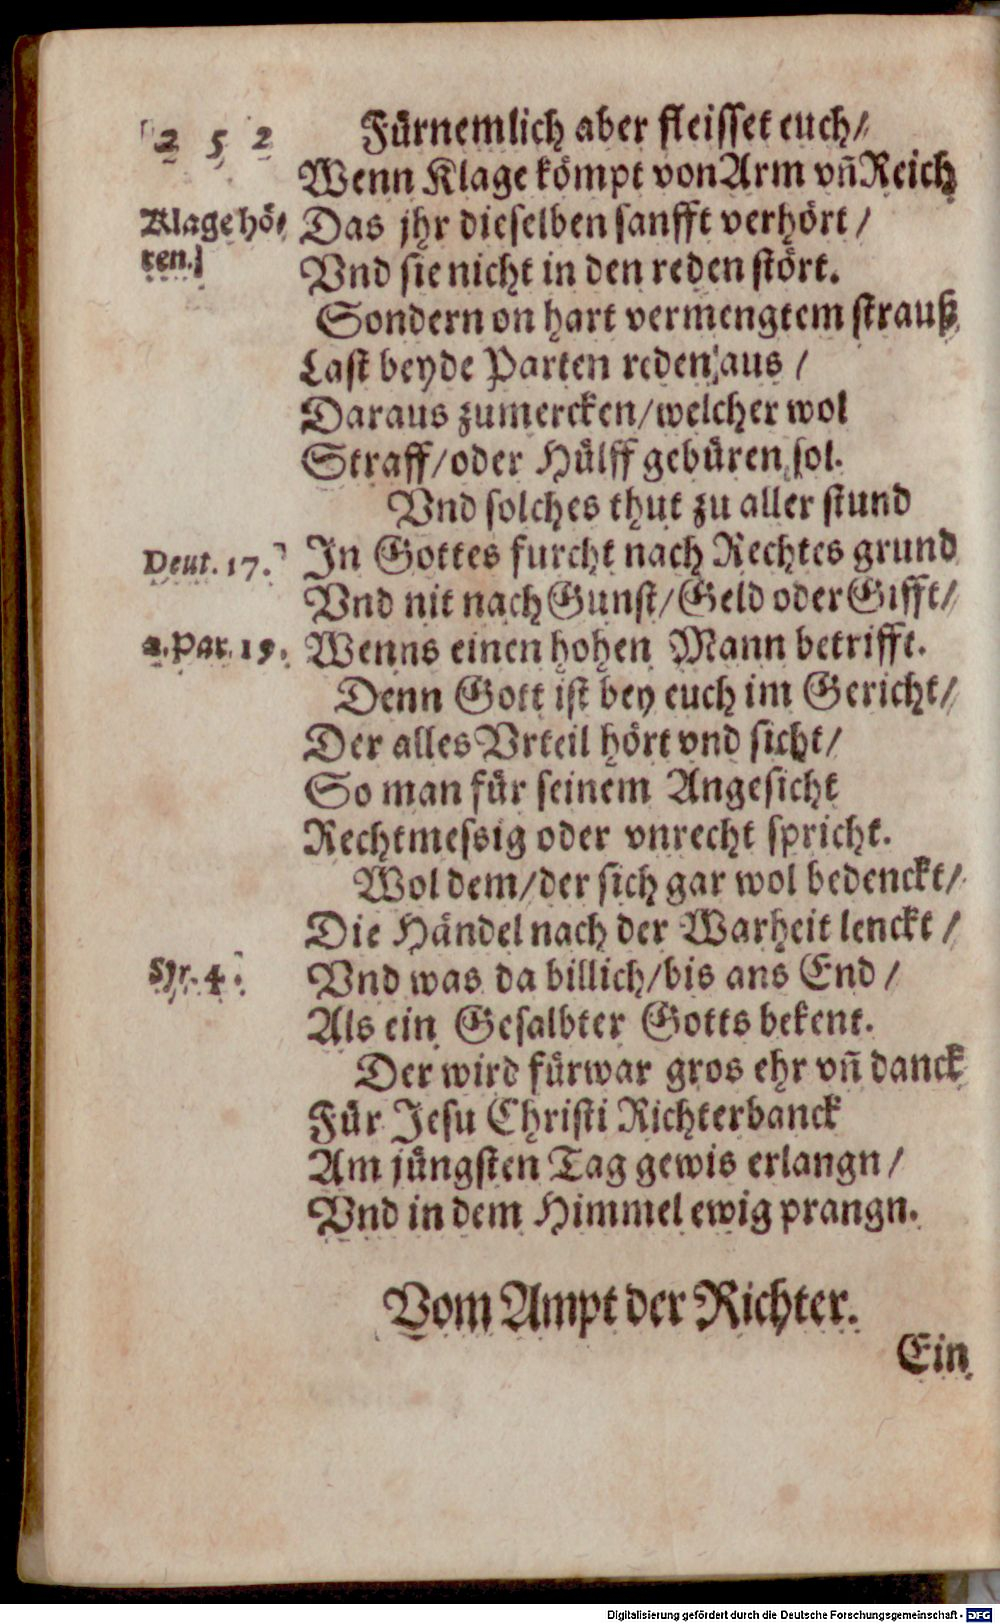 2 5 2
Fürnemlich aber fleisset euch/
Wenn Klage kömpt von Arm vñ Reich
Klage hö-
ren.
Das jhr dieselben sanfft verhört/
Vnd sie nicht in den reden stört.
Sondern on hart vermengtem strauß
Last beyde Parten reden aus/
Daraus zumercken/welcher wol
Straff/oder Hülff gebüren sol.
Vnd solches thut zu aller stund
Deut. 17.
In Gottes furcht nach Rechtes grund
Vnd nit nach Gunst/Geld oder Gifft/
2. Par. 19.
Wenns einen hohen Mann betrifft.
Denn Gott ist bey euch im Gericht/
Der alles Vrteil hört vnd sicht/
So man für seinem Angesicht
Rechtmessig oder vnrecht spricht.
Wol dem/der sich gar wol bedenckt/
Die Händel nach der Warheit lenckt/
Syr. 4.
Vnd was da billich/bis ans End/
Als ein Gesalbter Gotts bekent.
Der wird fürwar gros ehr vñ danck
Für Jesu Christi Richterbanck
Am jüngsten Tag gewis erlangn/
Vnd in dem Himmel ewig prangn.
Vom Ampt der Richter.
Ein
Digitalisierung gefördert durch die Deutsche Forschungsgemeinschaft - DFG